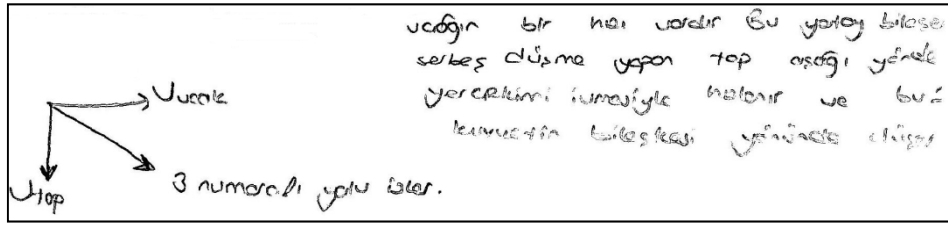 uçağın bir hızı vardır Bu yatay bileşe
serbes düşme yapan top aşağı yönde
yerçekimi ivmesiyle hızlanır ve bu 2
kuvvetin bileşkesi yönünde düşer
Vuçak
Vtop
3 numaralı yolu izler.